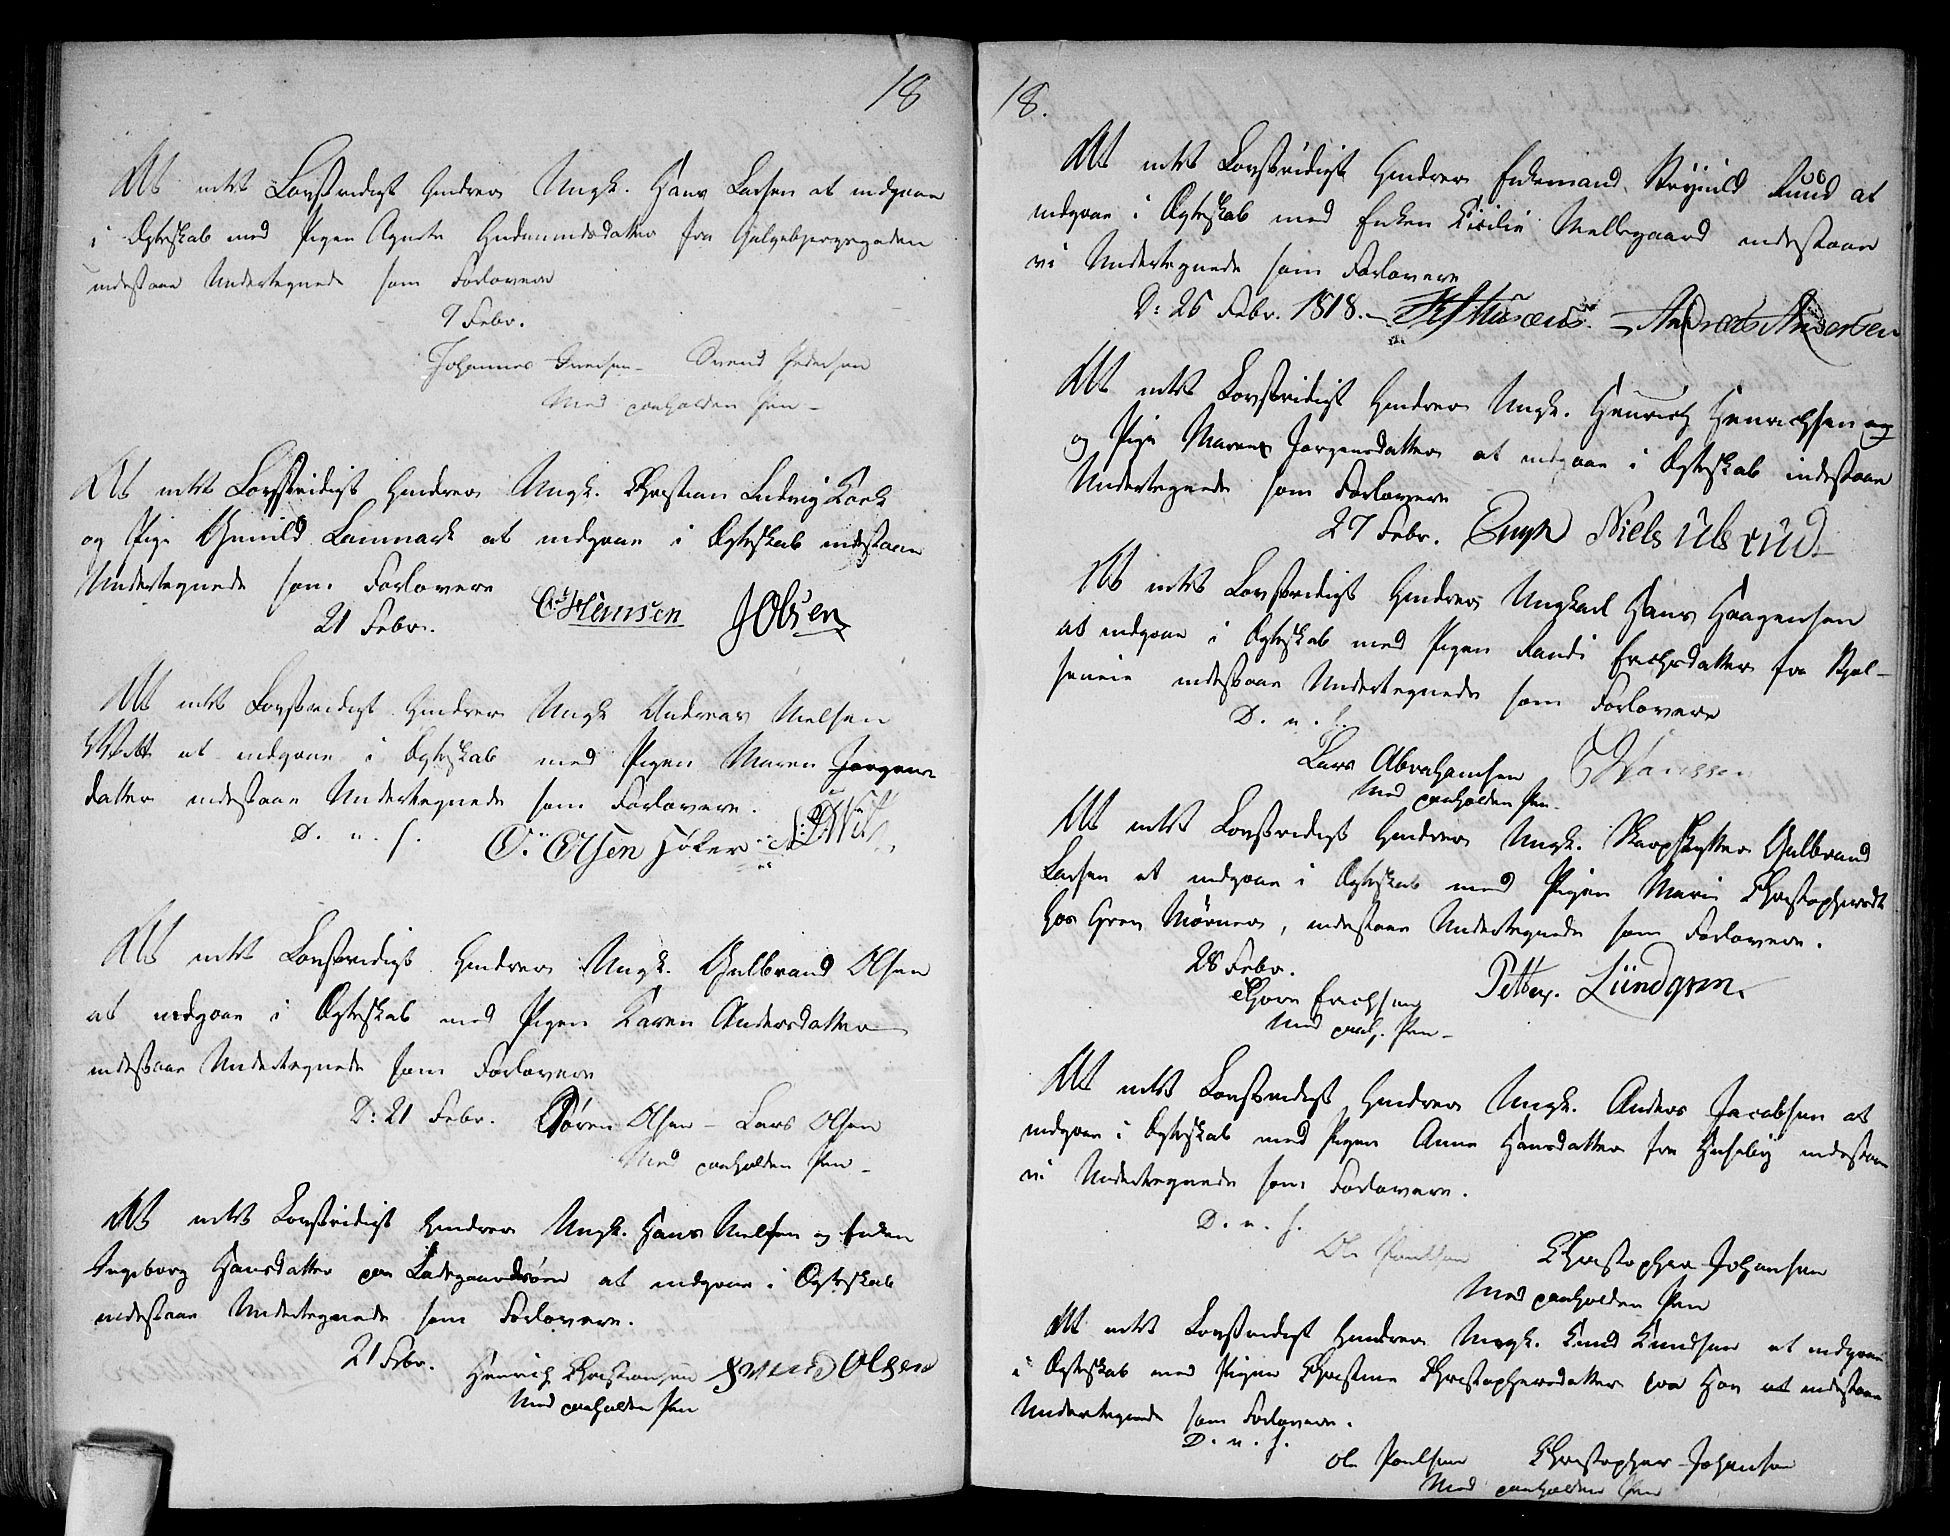 18
At intet Lovstridigt hindrer Ungk. Hans Larsen at indgaae
i Ægteskab med Pigen Agnete Gudmundsdatter fra Galgebjergsgaden
indestaae Undertegnede som Forlovere
9 Febr.
Johannes Iversen – Svend Pedersen
Med paaholden Pen –
At intet Lovstridigt hindrer Ungk. Christian Ludvig Koch
og Pige Gunild Lanmark at indgaae i Ægteskab indestaae
Undertegnede som Forlovere
21 Febr. Hansen JOlsen
At intet Lovstridigt hindrer Ungk Andreas Nielsen
Witt at indgaae i Ægteskab med Pigen Maren Jørgens
datter indestaae Undertegnede som Forlovere.
D. u. s. O. Olsen Høker Witt
At intet Lovstridigt hindrer Ungk. Gulbrand Olsen
at indgaae i Ægteskab med Pigen Karen Andersdatter
indestaae Undertegnede som Forlovere
D: 21 Febr. Søren Olsen – Lars Olsen
Med paaholden Pen –
At intet Lovstridigt hindrer Ungk. Hans Nielsen og Enken
Ingeborg Hansdatter paa Ladegaardsøen at indgaae i Ægteskab
indestaae Undertegnede som Forlovere.
21 Febr. Henrich Christiansen Svend Olsen
Med paaholden Pen
18.
At intet Lovstridigt hindrer Enkemand Ruud at
indgaae i Ægteskab med Enken Cicilie Mellegaard indestaae
vi Undertegnede som Forlovere
D: 26 Febr. 1818. – – Andreas Andersen
At intet Lovstridigt hindrer Ungk. Henrich Henrichsen og
og Pige Maren Jørgensdatter at indgaae i Ægteskab indestaae
Undertegnede som Forlovere
27 Febr. Engh Niels Ulsrud
At intet Lovstridigt hindrer Ungkarl Hans Haagensen
at indgaae i Ægteskab med Pigen Randi Erichsdatter fra
indestaae Undertegnede som Forlovere
D. u. s.
Lars Abrahamsen Hanssen
Med paaholden Pen.
At intet Lovstridigt hindrer Ungk. Skarpskytter Gulbrand
Larsen at indgaae i Ægteskab med Pigen Marie Christophersdt
hos Grev Mörner, indestaae Undertegnede som Forlovere.
28 Febr. Petter. Lündgren.
Thore Erichsen
Med paah. Pen –
At intet Lovstridigt hindrer Ungk. Anders Jacobsen at
indgaae i Ægteskab med Pigen Anne Hansdatter fra Huseby indestaae
vi Undertegnede som Forlovere.
D. u. s.
Ole Poulsen Christopher Johansen
Med paaholden Pen
At intet Lovstridigt hindrer Ungk. Knud Knudsen at indgaae
i Ægteskab med Pigen Christine Christophersdatter indestaae
Undertegnede som Forlovere.
D. u. s.
Ole Poulsen Christopher Johansen
Med paaholden Pen